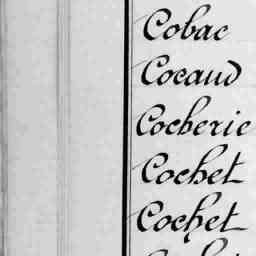 Cobac
Cocaud
Cocherie
Cochet
Cochet